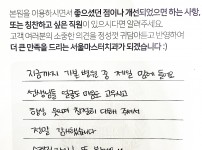 본원을 이용하시면서 좋으셨던 점이나 개선되었으면 하는 사항,
또는 칭찬하고 싶은 직원이 있으시다면 알려주세요.
고객 여러분의 소중한 의견을 정성껏 귀담아듣고 반영하여
더 큰 만족을 드리는 서울마스터치과가 되겠습니다 :)
지금까지 가본 병원 중 제일
선생님들 얼굴도 마음도 고우시고
항상 웃으며 친절히 대해 주셔서
정말 감사했습니다